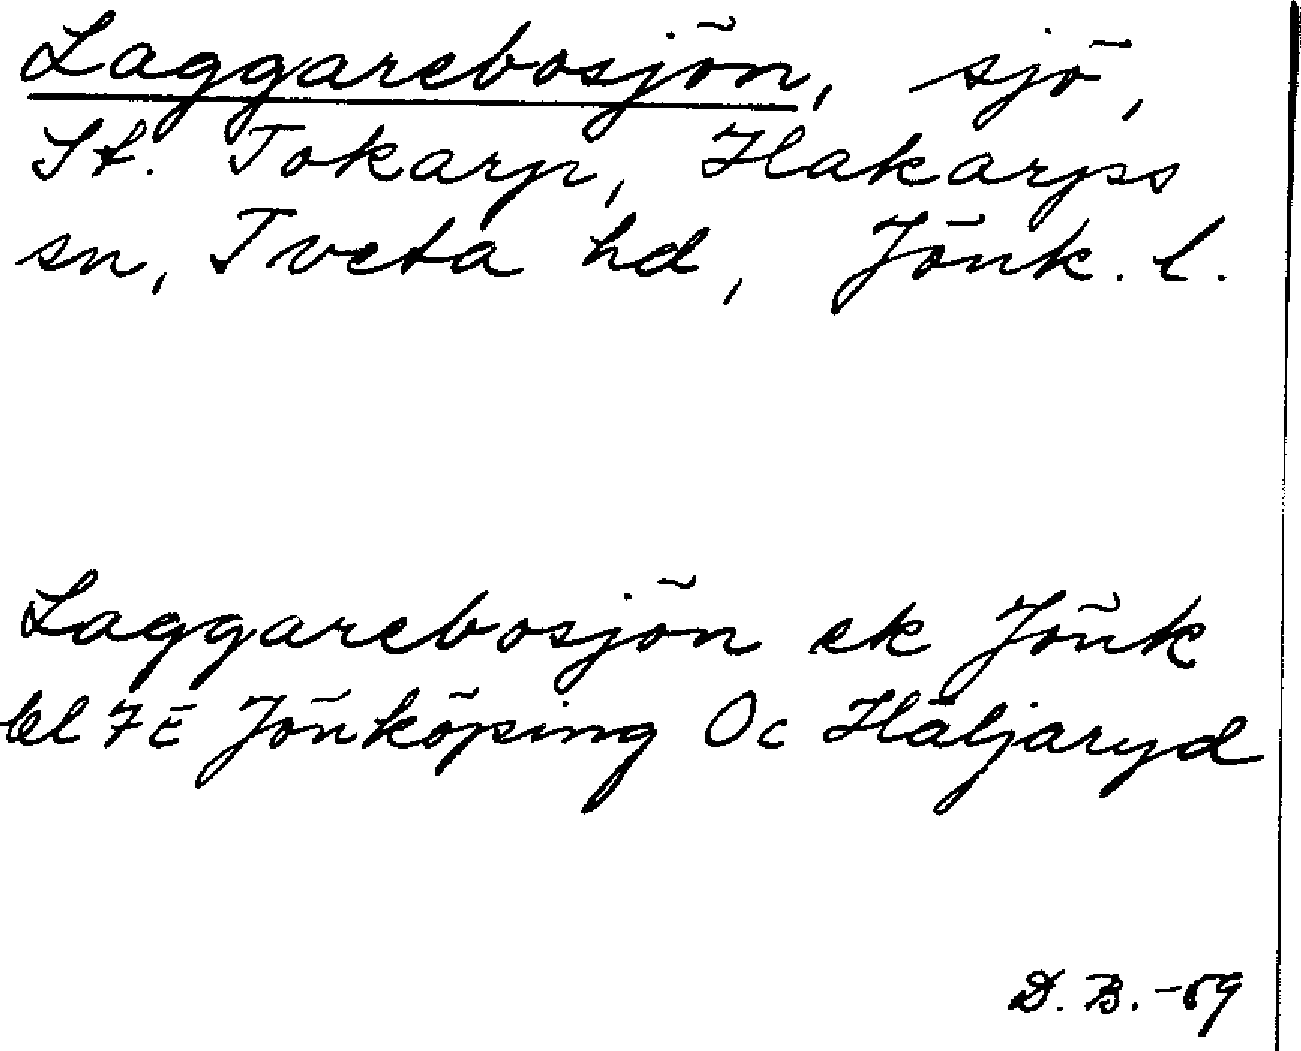 Laggarebosjön, sjö,
St. Tokarp, Hakarps
sn, Tveta hd, Jönk. l.
Laggarebosjön ek Jönk
bl 7E Jönköping Oc Häljaryd
D. B. -59